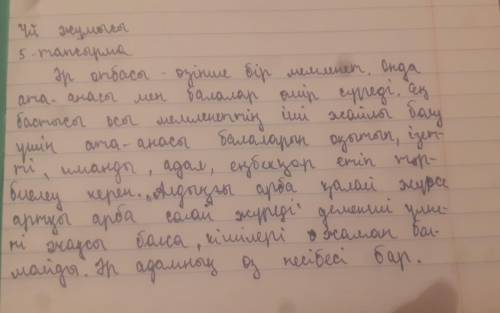 Үй жұмысы
5-тапсырма
Әр отбасы - өзінше бір мемлекет. Онда
ата-анасы мен балалар өмір сүреді. Ең
бастысы осы мемлекеттің іші жайлы болу
үшін ата-анасы балаларын оқытып, ізет-
ті, иманды, адал, еңбекқор етіп тәр-
биелеу керек. "Алдыңғы арба қалай жүрсе
артқы арба солай жүреді" демекші үлке-
ні жақсы болса, кішілері жаман бол-
майды. Әр адамның өз несібесі бар.